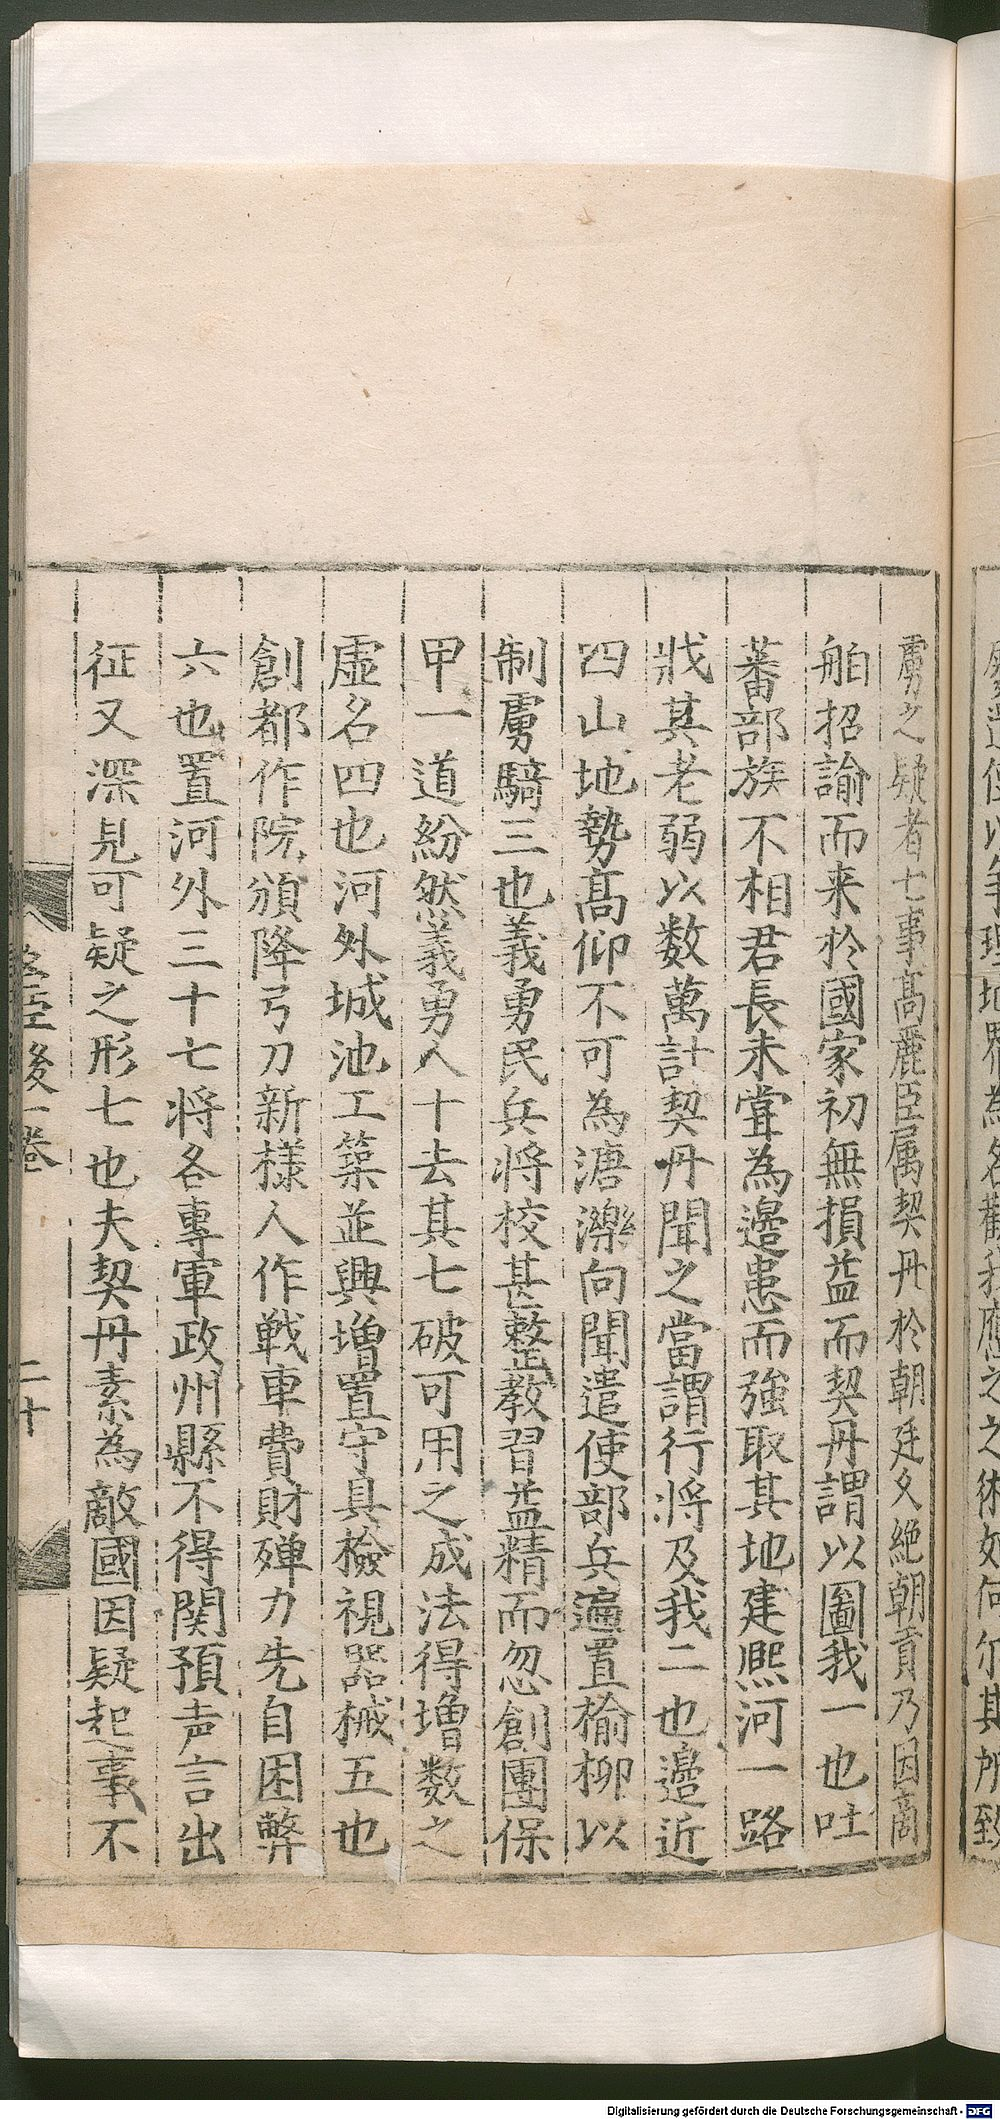 虜之疑者七事髙麗臣属契丹於朝廷久絶朝貢乃因商
舶招諭而来於國家初無損益而契丹謂以圖我一也吐
蕃部族不相君長未甞為邉患而強取其地建熈河一路
戕其老弱以数萬計契丹聞之當謂行将及我二也邉近
四山地勢髙仰不可為溏濼向聞遣使部兵遍置榆柳以
制虜騎三也義勇民兵将校甚整教習益精而忽創團保
甲一道紛然義勇人十去其七破可用之成法得増数之
虚名四也河外城池工築並興増置守具檢視器械五也
創都作院頒降弓刀新様人作戦車費財殫力先自困弊
六也置河外三十七将各專軍政州縣不得関預声言出
征又深見可疑之形七也夫契丹素為敵國因疑起事不
後一卷
二十
Digitalisierung gefördert durch die Deutsche Forschungsgemeinschaft - DFG